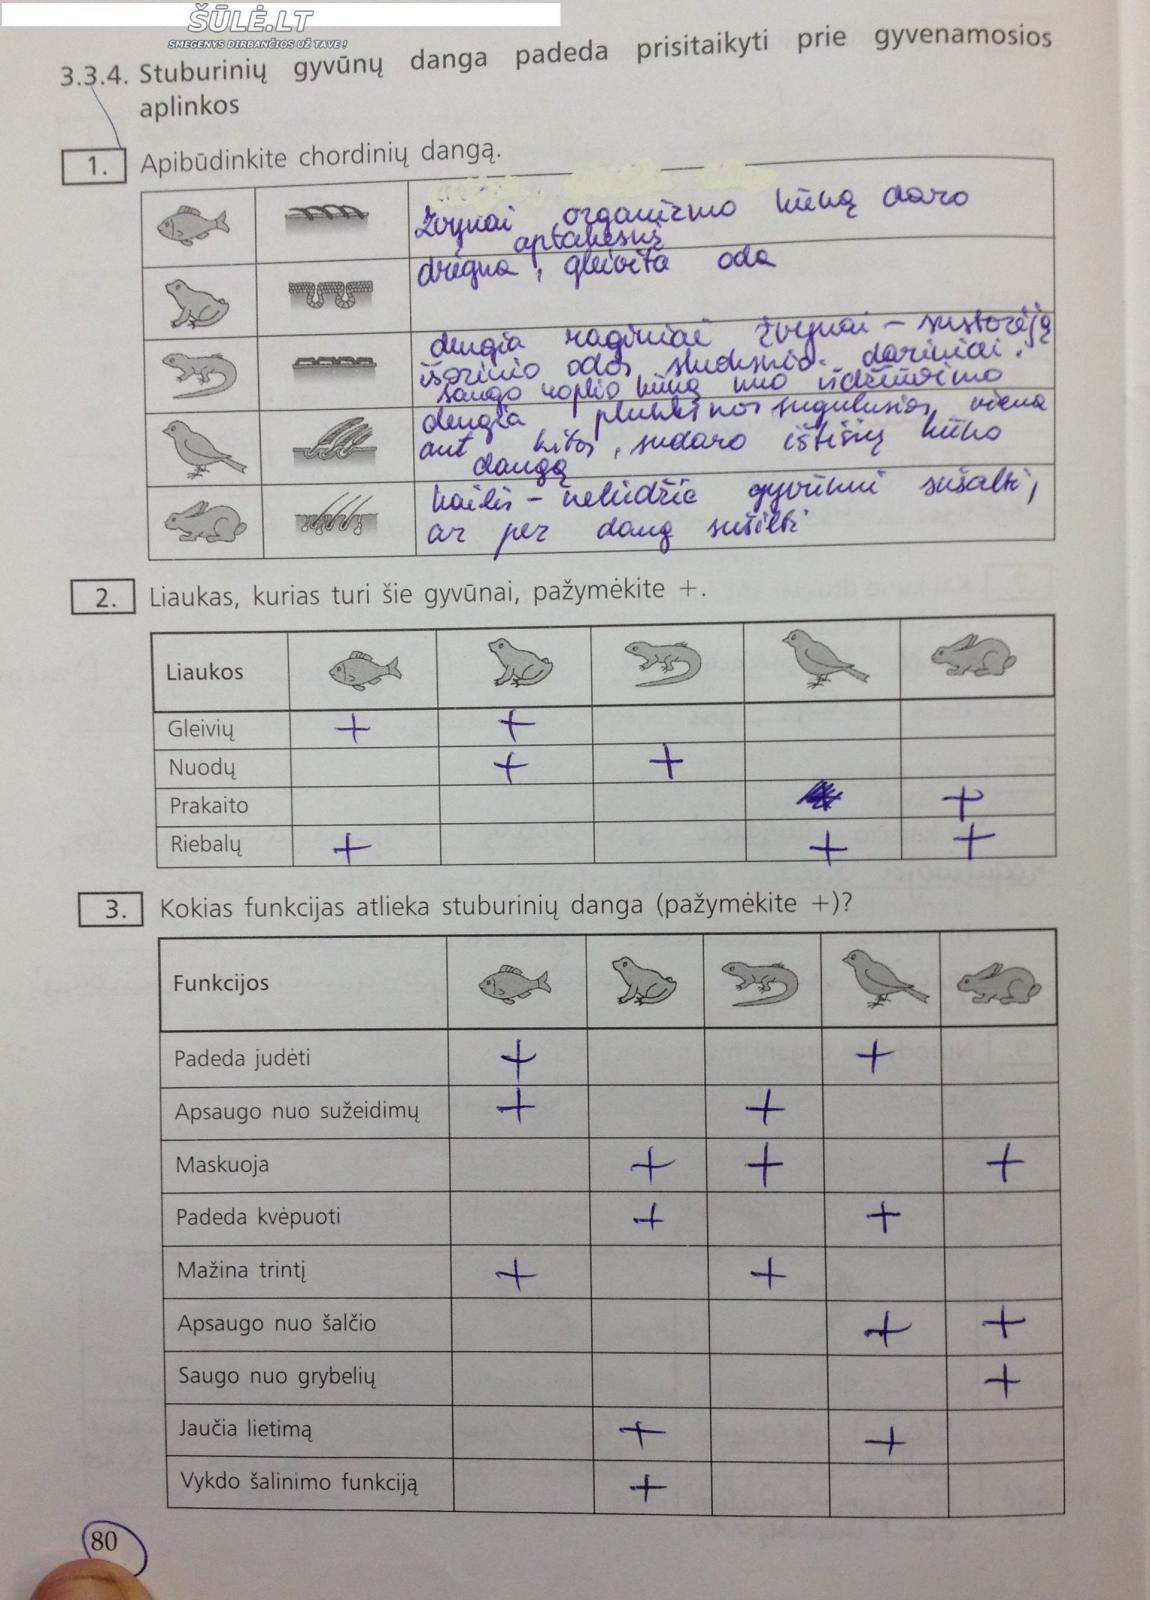 ŠŪLĖ.LT
SMEGENYS DIRBANČIOS UŽ TAVE!
3.3.4. Stuburinių gyvūnų danga padeda prisitaikyti prie gyvenamosios
aplinkos
1. Apibūdinkite chordinių dangą.
žvynai organizmo kūną daro
aptakesnį
drėgna, gleivėta oda
dengia raginiai žvynai – sustorėję
išorinio odos sluoksnio dariniai.
saugo roplio kūną nuo išdžiūvimo
dengia plunksnos sugulusios viena
ant kitos, sudaro ištisinę kūno
dangą
kailis – neleidžia gyvūnui sušalti,
ar per daug sušilti
2. Liaukas, kurias turi šie gyvūnai, pažymėkite +.
Liaukos
Gleivių + +
Nuodų + +
Prakaito +
Riebalų + + +
3. Kokias funkcijas atlieka stuburinių danga (pažymėkite +)?
Funkcijos
Padeda judėti + +
Apsaugo nuo sužeidimų + +
Maskuoja + + +
Padeda kvėpuoti + +
Mažina trintį + +
Apsaugo nuo šalčio + +
Saugo nuo grybelių +
Jaučia lietimą + +
Vykdo šalinimo funkciją +
80